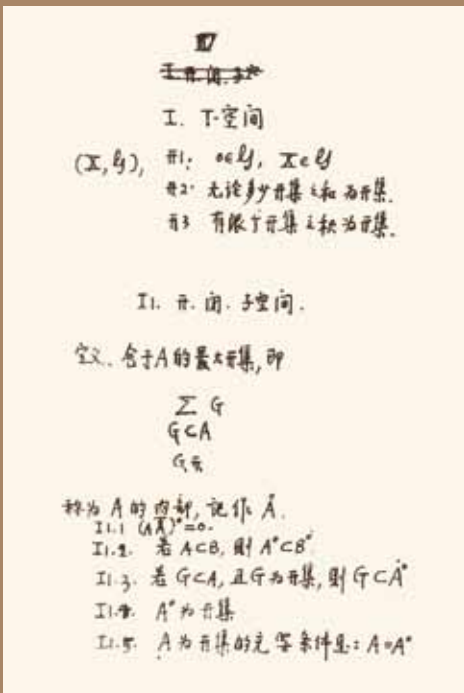 I. T·空间
(X, 𝒢), 开1: o∈𝒢, X∈𝒢
开2: 无论多少开集之和为开集.
开3 有限个开集之积为开集.
I1. 开.闭.子空间.
定义. 含于A的最大开集, 即
∑ G
G⊂A
G开
称为 A 的内部, 记作 Å.
I1.1
I1.2. 若 A⊂B, 则 A°⊂B°
I1.3. 若 G⊂A, 且G为开集, 则 G⊂A°
I1.4. A°为开集
I1.5. A为开集的充要条件是: A=A°